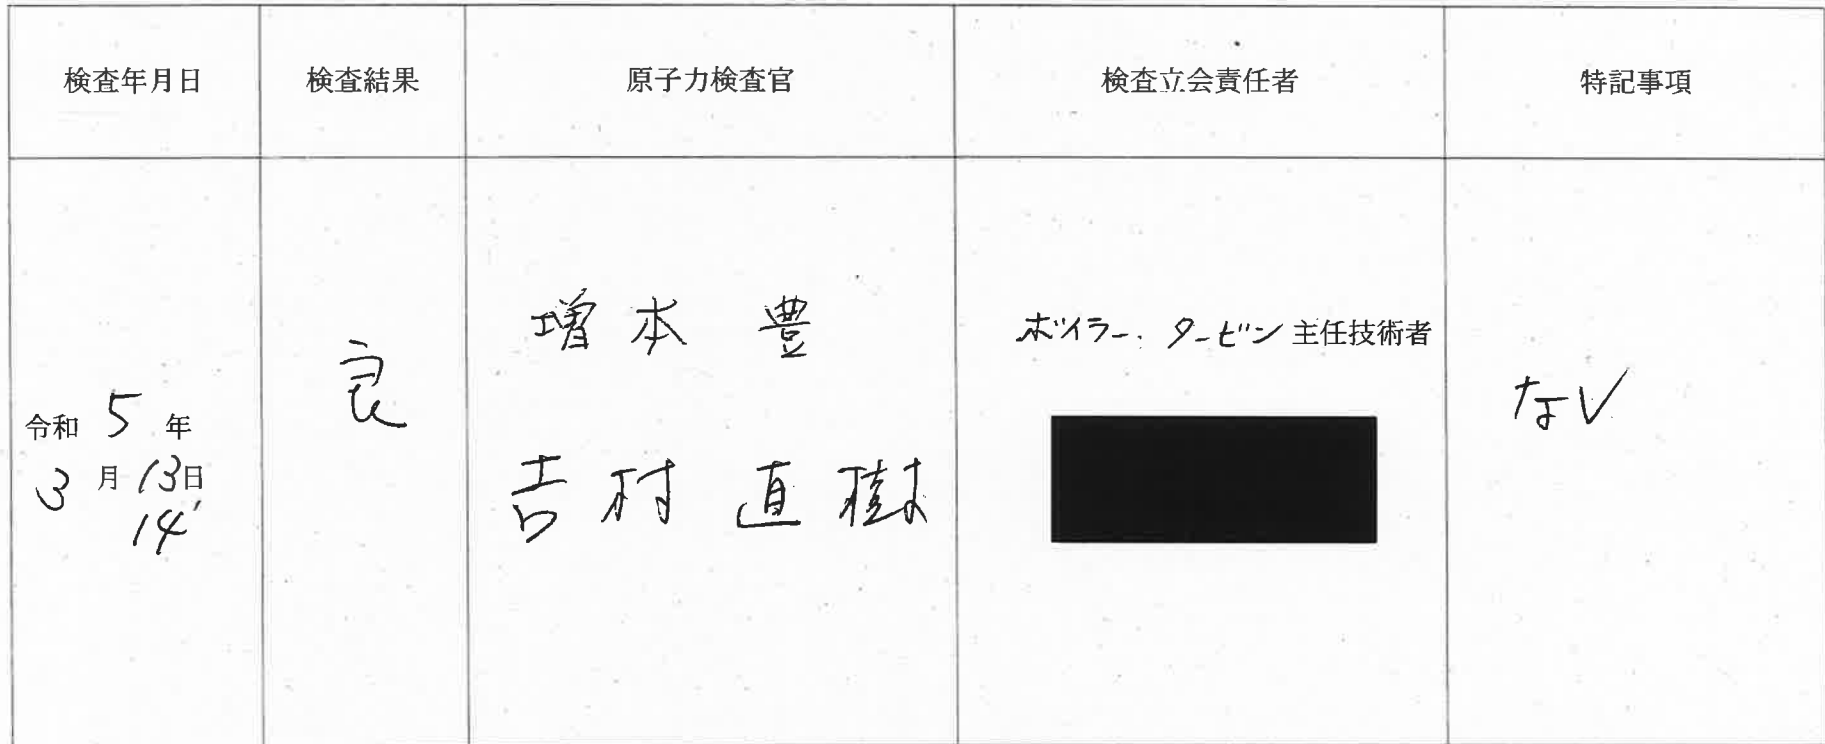 検査年月日
検査結果
原子力検査官
検査立会責任者
特記事項
令和 5 年
3 月 13日
14
良
増本 豊
吉村 直樹
ボイラー・タービン主任技術者
なし